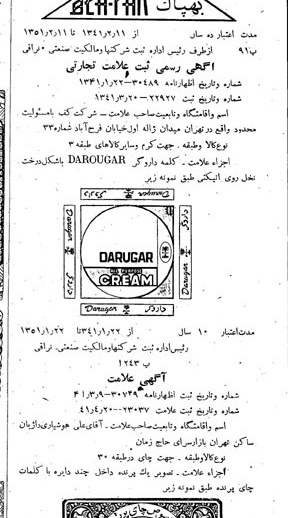 BEH-PAK
بهپاک
مدت اعتبار ده سال از ۱۳۴۱/۲/۱۱ تا ۱۳۵۱/۲/۱۱
پ۹۱ ازطرف رئیس اداره ثبت شرکتها ومالکیت صنعتی - نراقی
آگهی رسمی ثبت علامت تجارتی
شماره وتاریخ اظهارنامه ۳۰۴۸۹-۱۳۴۱/۱/۲۲
شماره وتاریخ ثبت ۲۲۹۲۷-۱۳۴۱/۳/۲۰
اسم واقامتگاه وتابعیت صاحب علامت - شرکت کف بامسئولیت
محدود واقع در تهران میدان ژاله اول خیابان فرح آباد شماره ۳۳
نوع کالا وطبقه . جهت کرم وسایر کالاهای طبقه ۳
اجزاء علامت . کلمه داروگر DAROUGAR باشکل درخت
نخل روی اتیکتی طبق نمونه زیر
Darugar
داروگر
Darugar
داروگر
DARUGAR
CREAM
داروگر
Darugar
Darugar
داروگر
مدت اعتبار ۱۰ سال از ۱۳۴۱/۱/۲۲ تا ۱۳۵۱/۱/۲۲
رئیس اداره ثبت شرکتها ومالکیت صنعتی. نراقی
پ ۱۲۴۳
آگهی علامت
شماره وتاریخ ثبت اظهارنامه ۳۰۷۴۹-۴۱/۳/۹
شماره وتاریخ ثبت علامت ۲۳۰۳۷-۴۱/۴/۲۰
اسم واقامتگاه وتابعیت صاحب علامت - آقای علی هوشیاری داژیان
ساکن تهران بازار سرای حاج زمان
نوع کالا وطبقه . جهت چای در طبقه ۳۰
اجزاء علامت . تصویر یک پرنده داخل چند دایره با کلمات
چای پرنده طبق نمونه زیر